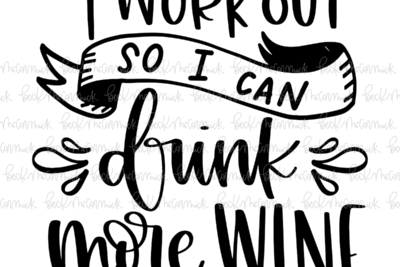 I WORK OUT
SO I CAN
drink
more WINE